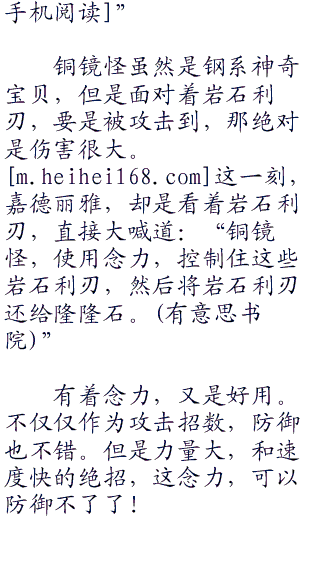 手机阅读]”
铜镜怪虽然是钢系神奇
宝贝，但是面对着岩石利
刃，要是被攻击到，那绝对
是伤害很大。
[m.heihei168.com]这一刻，
嘉德丽雅，却是看着岩石利
刃，直接大喊道：“铜镜
怪，使用念力，控制住这些
岩石利刃，然后将岩石利刃
还给隆隆石。(有意思书
院)”
有着念力，又是好用。
不仅仅作为攻击招数，防御
也不错。但是力量大，和速
度快的绝招，这念力，可以
防御不了了！